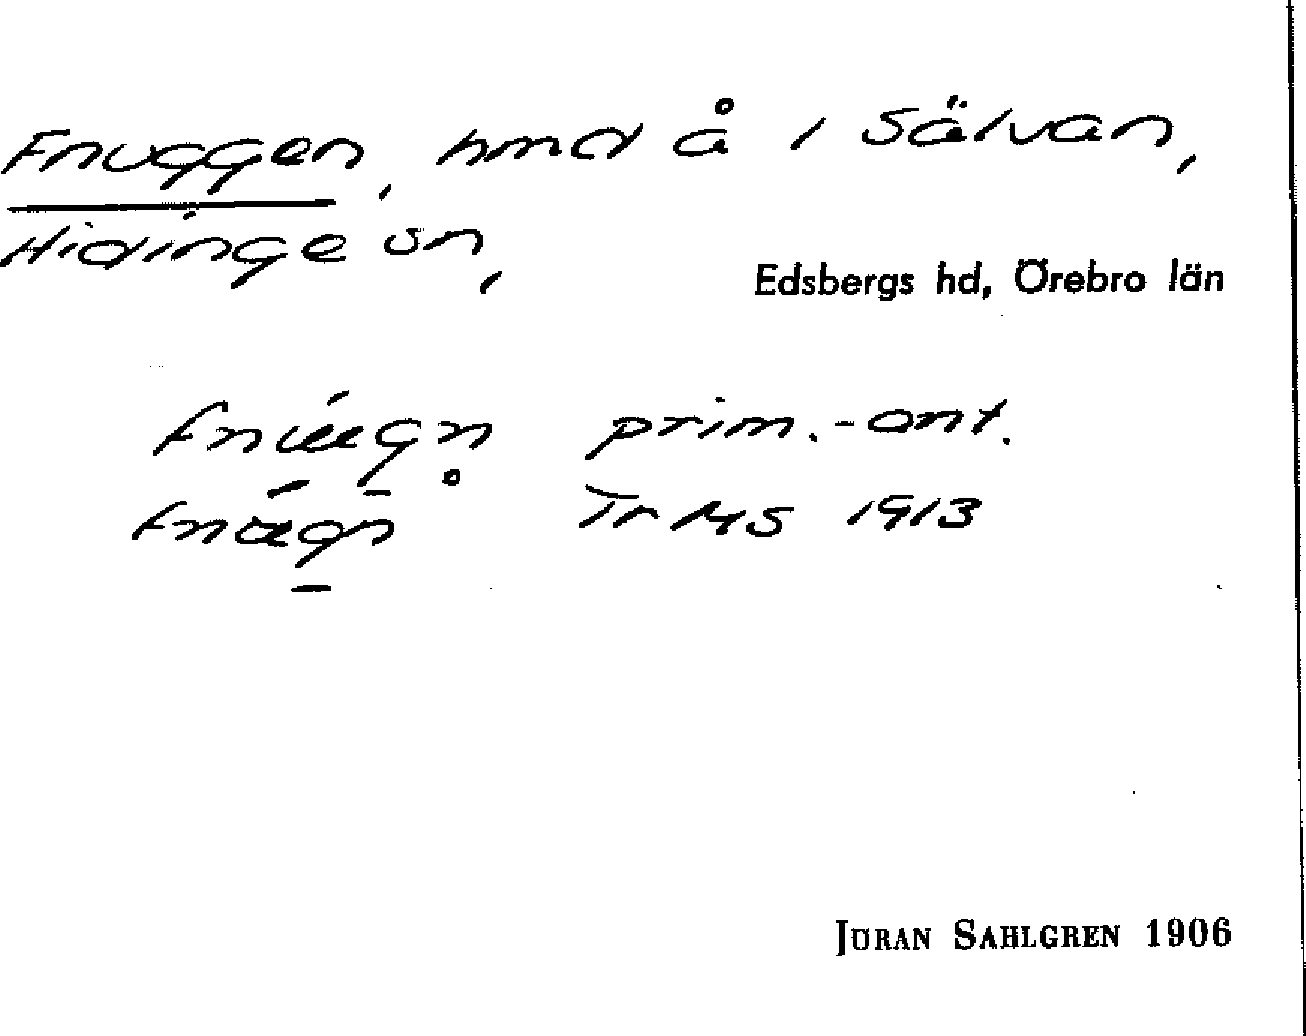 Fnuggen, hmd å i Sälvan,
Hidinge sn,
Edsbergs hd, Örebro län
prim.-ant.
Tr MS 1913
JÖRAN SAHLGREN 1906